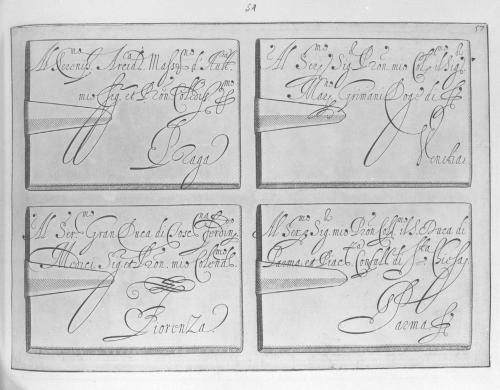 54
57
Al Sereniss.mo Arcid.ca Massi.no d'Aust.
mio Sig. et Pron. Collendiss.mo
Praga
Al Ser.mo Sig.r Pron. mio Col.mo il Sig.
Mar. Grimani Doge di
Venetia
Al Ser.mo Gran Duca di Tosc.na Ferdin.
Medici Sig. et Pron. mio Colend.mo
Fiorenza
Al Ser.mo Sig. mio Pron. Col.mo il S. Duca di
Parma et Piac. Confall. di S.ta Chiesa
Parma